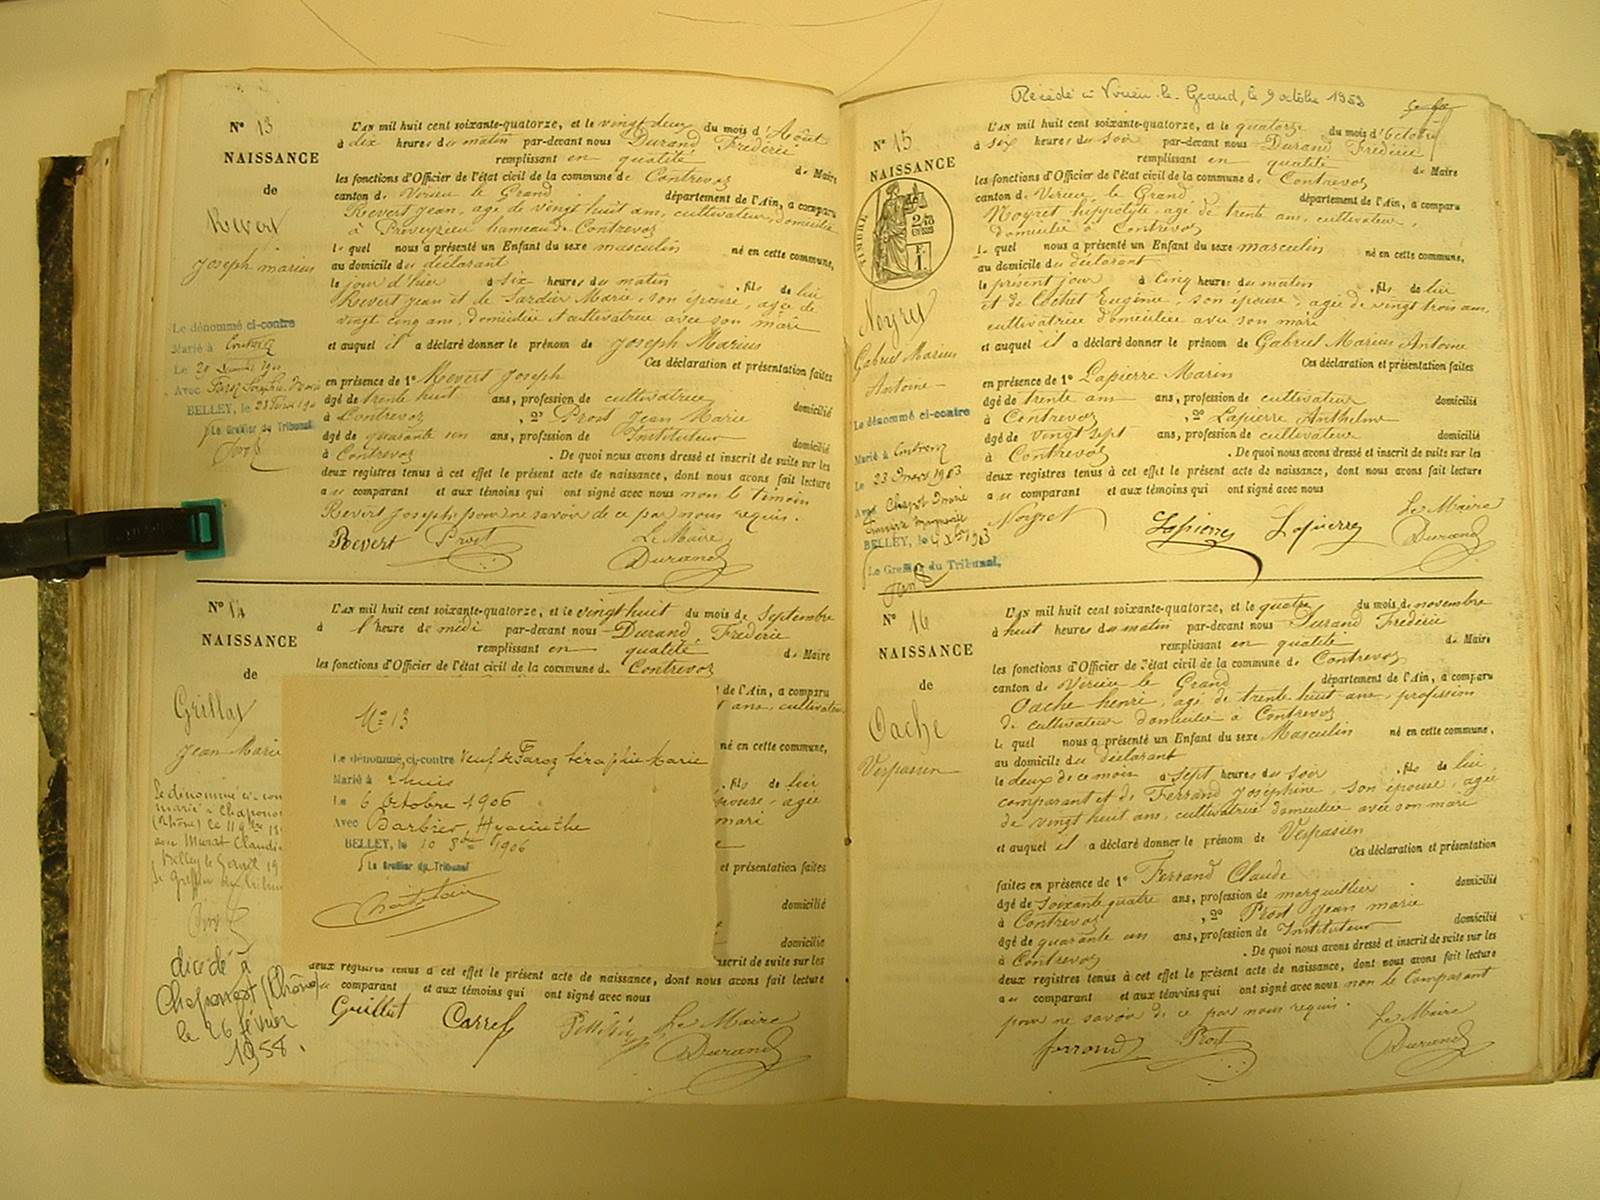 N° 13
NAISSANCE
de
Revert
Joseph marius
Le dénommé ci-contre
Marié à Contrevoz
Le
Avec
BELLEY, le
Le Greffier du Tribunal
L'AN mil huit cent soixante-quatorze, et le vingt deux du mois d'Août
à dix heures du matin par-devant nous Durand Frédéric
remplissant en qualité de Maire
les fonctions d'Officier de l'état civil de la commune de Contrevoz
canton de Virieu le Grand département de l'Ain, a comparu
Revert Jean, agé de vingt huit ans, cultivateur, domicilié
à Proveyzieu hameau de Contrevoz
lequel nous a présenté un Enfant du sexe masculin né en cette commune,
au domicile du déclarant
le jour d'hier à six heures du matin , fils de lui
Revert Jean et de Sardier Marie, son épouse, agée de
vingt cinq ans, domiciliée et cultivatrice avec son mari
et auquel il a déclaré donner le prénom de Joseph Marius
Ces déclaration et présentation faites
en présence de 1° Revert Joseph
âgé de trente huit ans, profession de cultivateur domicilié
à Contrevoz , 2° Prost Jean Marie
âgé de quarante un ans, profession de Instituteur domicilié
à Contrevoz . De quoi nous avons dressé et inscrit de suite sur les
deux registres tenus à cet effet le présent acte de naissance, dont nous avons fait lecture
au comparant et aux témoins qui ont signé avec nous non le témoin
Revert Joseph pour ne savoir de ce par nous requis.
Revert Prost Le Maire
Durand
N° 14
NAISSANCE
de
Grillat
Jean Marie
Le dénommé ci-con
marié à Chapono
(Rhône) le 11 9bre 18
avec Murat Claudi
Belley le 6 avril 19
Le Greffier du Tribun
décédé à
Chaponost (Rhône)
le 26 février
1958.
L'AN mil huit cent soixante-quatorze, et le vingt huit du mois de Septembre
à l'heure de midi par-devant nous Durand Frédéric
remplissant en qualité de Maire
les fonctions d'Officier de l'état civil de la commune de Contrevoz
de l'Ain, a comparu
ans, cultivateur
né en cette commune,
, fils de lui
épouse, agée
mari
et présentation faites
domicilié
domicilié
inscrit de suite sur les
N° 13
Le dénommé, ci-contre Veuf de Faroz Séraphie Marie
Marié à
Le 6 Octobre 1906
Avec Barbier, Hyacinthe
BELLEY, le 10 8bre 1906
Le Greffier du Tribunal
deux registres tenus à cet effet le présent acte de naissance, dont nous avons fait lecture
au comparant et aux témoins qui ont signé avec nous
Grillat Carrel Le Maire
Durand
Décédé à Virieu-le-Grand, le 9 octobre 1953
N° 15
NAISSANCE
TIMBRE
Noyret
Gabriel Marius
Antoine
Le dénommé ci-contre
Marié à Contrevoz
Le 23 mars 1903
Avec
BELLEY, le
Le Greffier du Tribunal,
L'AN mil huit cent soixante-quatorze, et le quatorze du mois d'Octobre
à six heures du soir par-devant nous Durand Frédéric
remplissant en qualité de Maire
les fonctions d'Officier de l'état civil de la commune de Contrevoz
canton de Virieu le Grand département de l'Ain, a comparu
Noyret hippolyte, agé de trente ans, cultivateur,
domicilié à Contrevoz
lequel nous a présenté un Enfant du sexe masculin né en cette commune,
au domicile du déclarant
le présent jour à cinq heures du matin , fils de lui
et de Cochet Eugénie, son épouse, agée de vingt trois ans,
cultivatrice domiciliée avec son mari
et auquel il a déclaré donner le prénom de Gabriel Marius Antoine
Ces déclaration et présentation faites
en présence de 1° Lapierre Marin
âgé de trente ans ans, profession de cultivateur domicilié
à Contrevoz , 2° Lapierre Anthelme
âgé de vingt sept ans, profession de cultivateur domicilié
à Contrevoz . De quoi nous avons dressé et inscrit de suite sur les
deux registres tenus à cet effet le présent acte de naissance, dont nous avons fait lecture
au comparant et aux témoins qui ont signé avec nous
Noyret Lapierre Lapierre Le Maire
Durand
N° 16
NAISSANCE
de
Oache
Vespasien
L'AN mil huit cent soixante-quatorze, et le quatre du mois de novembre
à huit heures du matin par-devant nous Durand Frédéric
remplissant en qualité de Maire
les fonctions d'Officier de l'état civil de la commune de Contrevoz
canton de Virieu le Grand département de l'Ain, a comparu
Oache henri, agé de trente huit ans, profession
de cultivateur domicilié à Contrevoz
lequel nous a présenté un Enfant du sexe Masculin né en cette commune,
au domicile du déclarant
le deux de ce mois à sept heures du soir , fils de lui
comparant et de Ferrand Joséphine, son épouse, agée
de vingt huit ans, cultivatrice domiciliée avec son mari
et auquel il a déclaré donner le prénom de Vespasien
Ces déclaration et présentation
faites en présence de 1° Ferrand Claude
âgé de soixante quatre ans, profession de marguillier domicilié
à Contrevoz , 2° Prost Jean marie
âgé de quarante un ans, profession de Instituteur domicilié
à Contrevoz . De quoi nous avons dressé et inscrit de suite sur les
deux registres tenus à cet effet le présent acte de naissance, dont nous avons fait lecture
au comparant et aux témoins qui ont signé avec nous non le Comparant
pour ne savoir de ce par nous requis.
ferrand Prost Le Maire
Durand